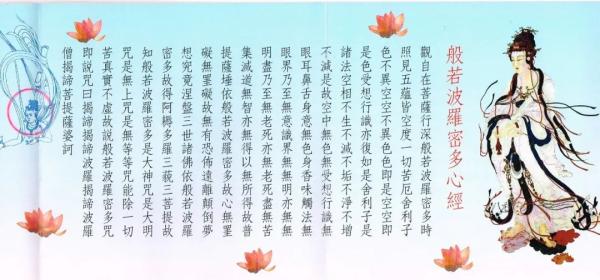 般若波羅密多心經
觀自在菩薩行深般若波羅密多時
照見五蘊皆空度一切苦厄舍利子
色不異空空不異色色即是空空即
是色受想行識亦復如是舍利子是
諸法空相不生不滅不垢不淨不增
不減是故空中無色無受想行識無
眼耳鼻舌身意無色身香味觸法無
眼界乃至無意識界無無明亦無無
明盡乃至無老死亦無老死盡無苦
集滅道無智亦無得以無所得故菩
提薩埵依般若波羅密多故心無罣
礙無罣礙故無有恐怖遠離顛倒夢
想究竟涅盤三世諸佛依般若波羅
密多故得阿耨多羅三藐三菩提故
知般若波羅密多是大神咒是大明
咒是無上咒是無等等咒能除一切
苦真實不虛故說般若波羅密多咒
即說咒曰揭諦揭諦波羅揭諦波羅
僧揭諦菩提薩婆訶